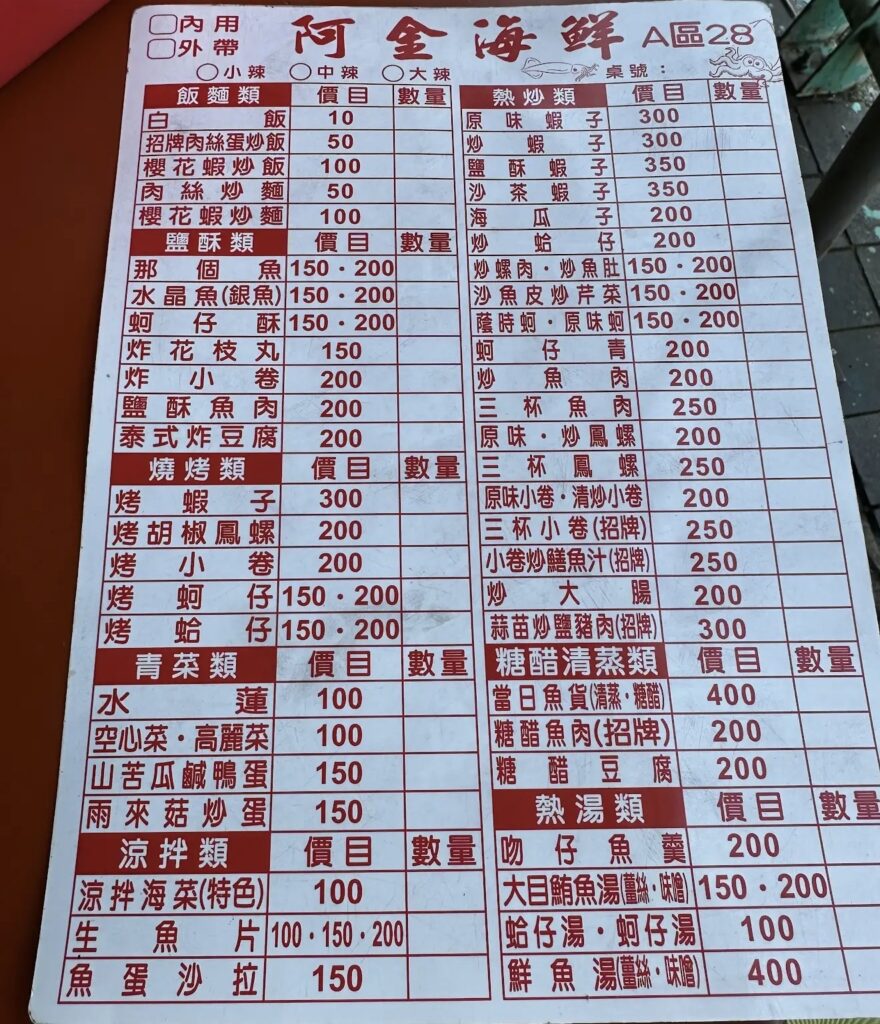 內用
外帶
阿金海鮮 A區28
小辣 中辣 大辣 桌號：
飯麵類 價目 數量
白飯 10
招牌肉絲蛋炒飯 50
櫻花蝦炒飯 100
肉絲炒麵 50
櫻花蝦炒麵 100
鹽酥類 價目 數量
那個魚 150・200
水晶魚(銀魚) 150・200
蚵仔酥 150・200
炸花枝丸 150
炸小卷 200
鹽酥魚肉 200
泰式炸豆腐 200
燒烤類 價目 數量
烤蝦子 300
烤胡椒鳳螺 200
烤小卷 200
烤蚵仔 150・200
烤蛤仔 150・200
青菜類 價目 數量
水蓮 100
空心菜・高麗菜 100
山苦瓜鹹鴨蛋 150
雨來菇炒蛋 150
涼拌類 價目 數量
涼拌海菜(特色) 100
生魚片 100・150・200
魚蛋沙拉 150
熱炒類 價目 數量
原味蝦子 300
炒蝦子 300
鹽酥蝦子 350
沙茶蝦子 350
海瓜子 200
炒蛤仔 200
炒螺肉・炒魚肚 150・200
沙魚皮炒芹菜 150・200
蔭時蚵・原味蚵 150・200
蚵仔青 200
炒魚肉 200
三杯魚肉 250
原味・炒鳳螺 200
三杯鳳螺 250
原味小卷・清炒小卷 200
三杯小卷(招牌) 250
小卷炒鱔魚汁(招牌) 250
炒大腸 200
蒜苗炒鹽豬肉(招牌) 300
糖醋清蒸類 價目 數量
當日魚貨(清蒸・糖醋) 400
糖醋魚肉(招牌) 200
糖醋豆腐 200
熱湯類 價目 數量
吻仔魚羹 200
大目鮪魚湯(薑絲・味噌) 150・200
蛤仔湯・蚵仔湯 100
鮮魚湯(薑絲・味噌) 400